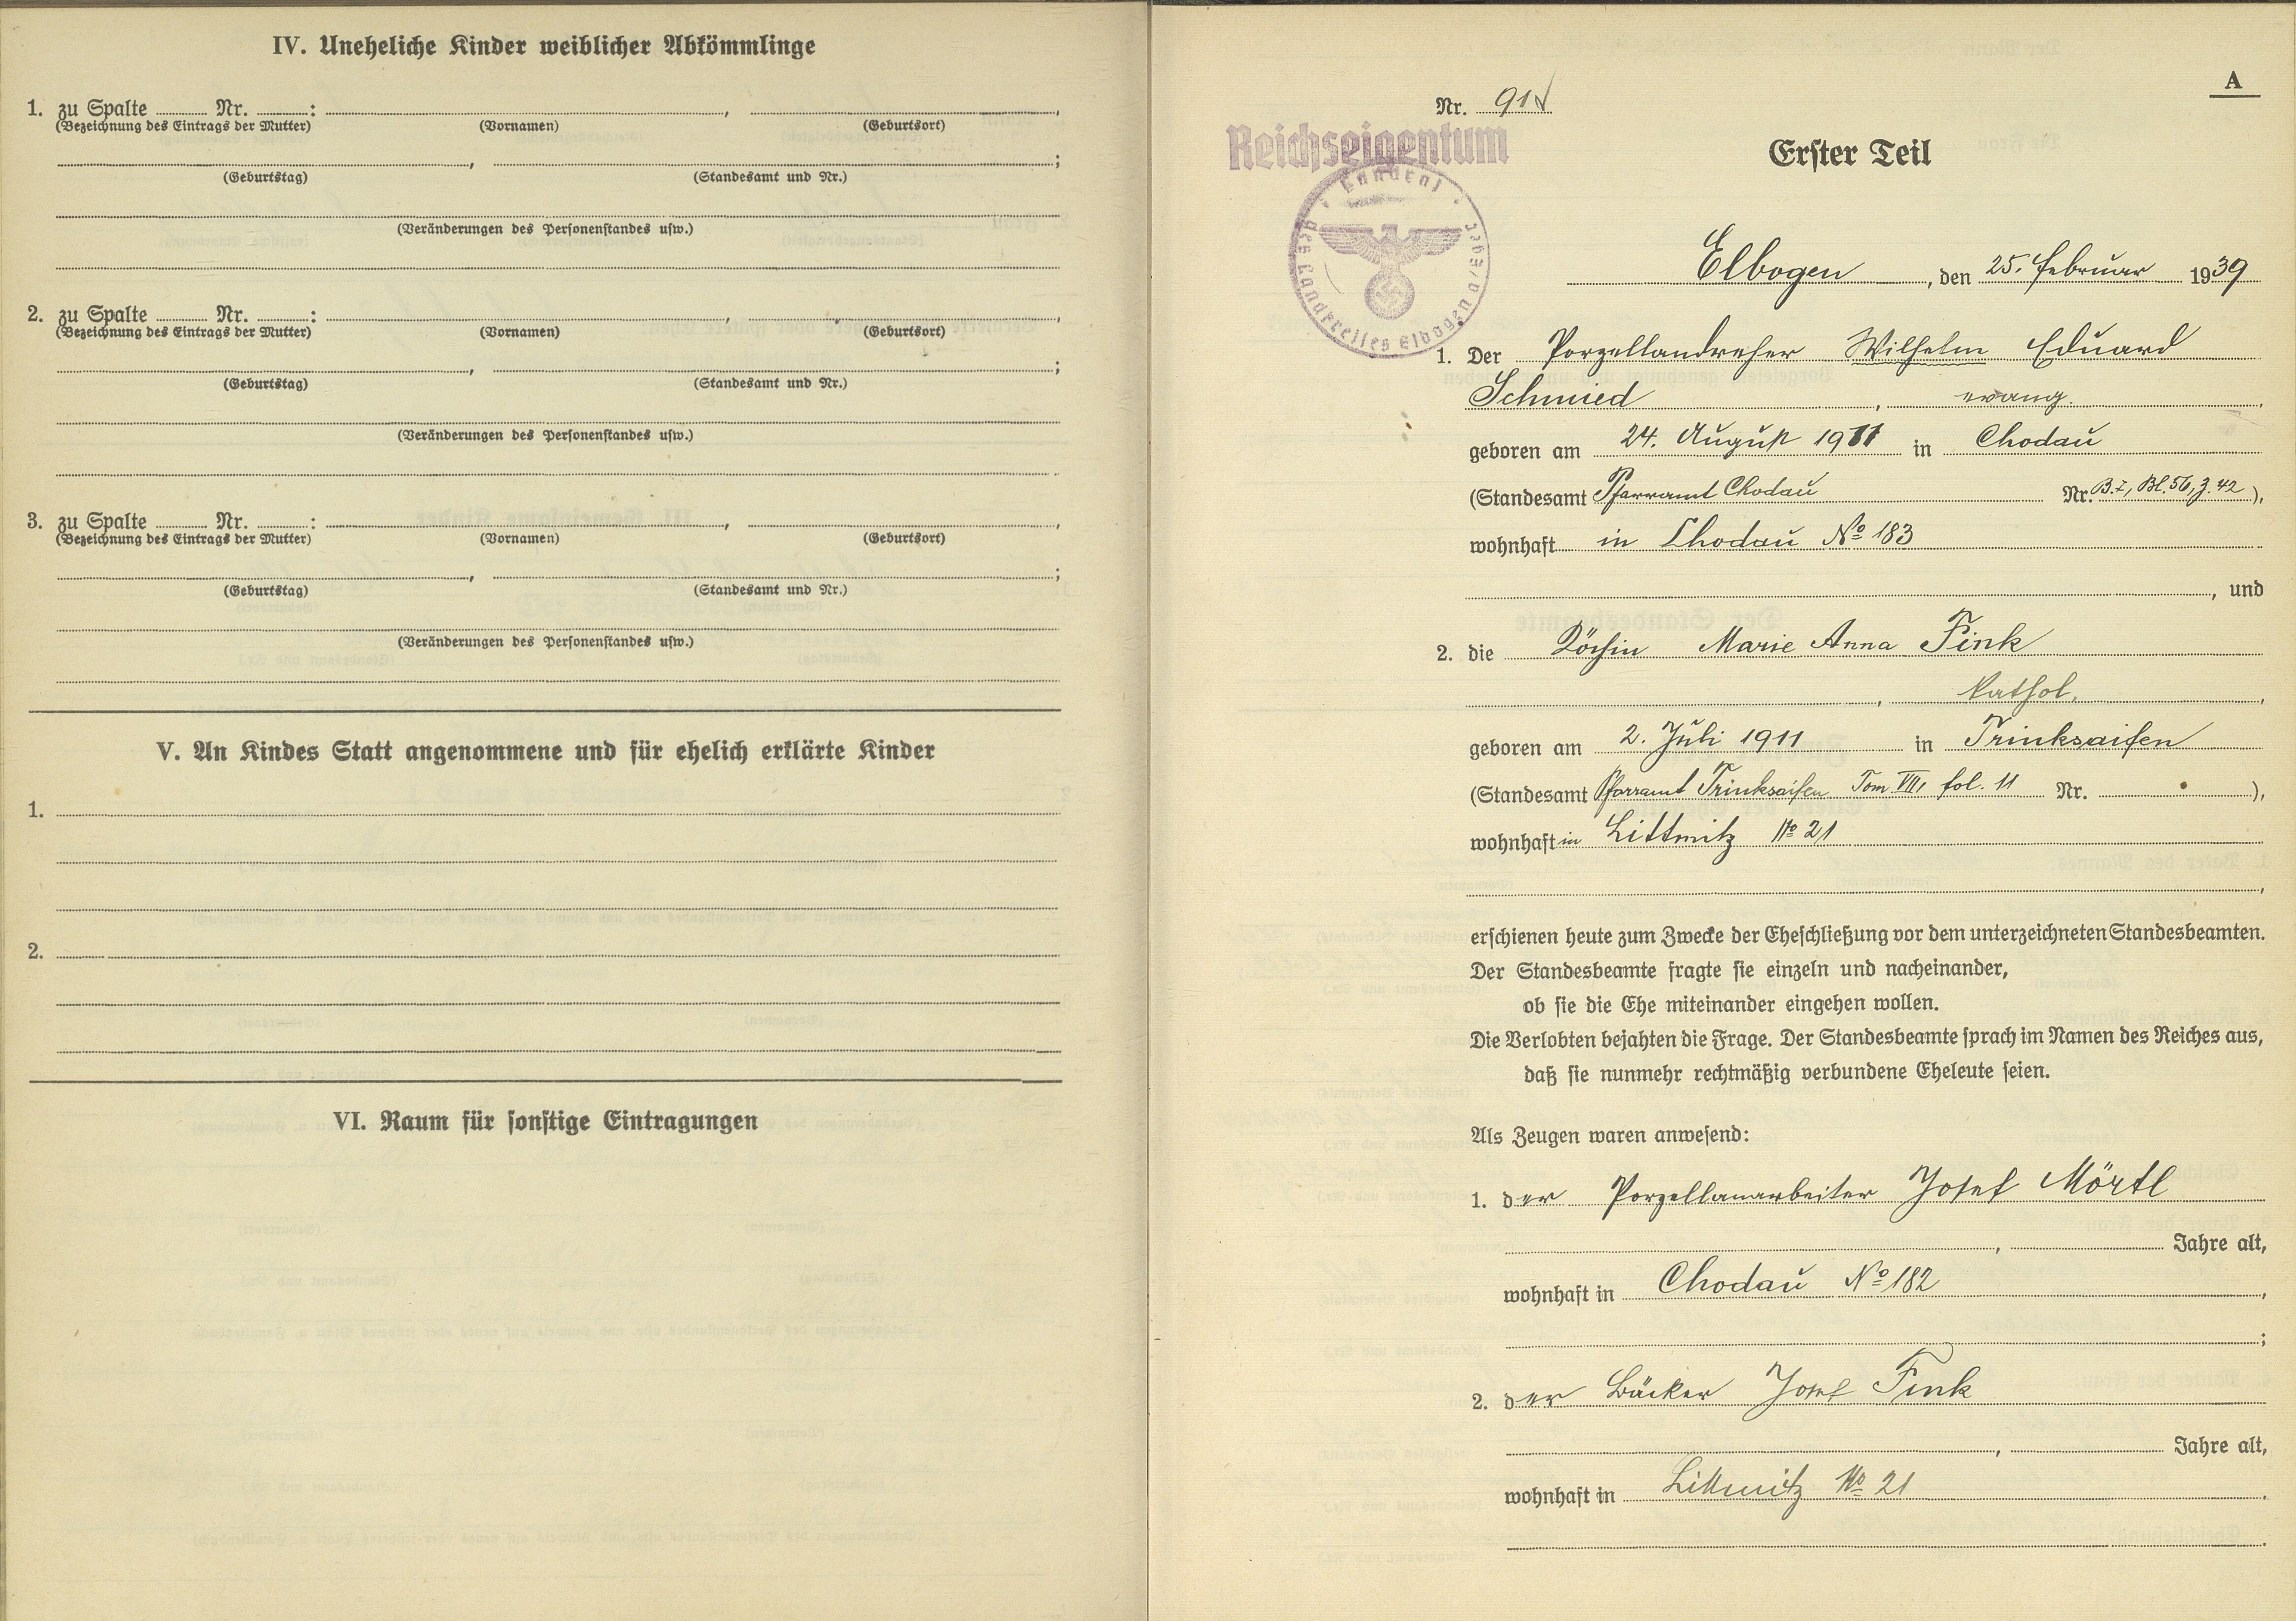 IV. Uneheliche Kinder weiblicher Abkömmlinge
1. zu Spalte Nr. : , ,
(Bezeichnung des Eintrags der Mutter) (Vornamen) (Geburtsort)
, ;
(Geburtstag) (Standesamt und Nr.)
(Veränderungen des Personenstandes usw.)
2. zu Spalte Nr. : , ,
(Bezeichnung des Eintrags der Mutter) (Vornamen) (Geburtsort)
, ;
(Geburtstag) (Standesamt und Nr.)
(Veränderungen des Personenstandes usw.)
3. zu Spalte Nr. : , ,
(Bezeichnung des Eintrags der Mutter) (Vornamen) (Geburtsort)
, ;
(Geburtstag) (Standesamt und Nr.)
(Veränderungen des Personenstandes usw.)
V. An Kindes Statt angenommene und für ehelich erklärte Kinder
1.
2.
VI. Raum für sonstige Eintragungen
A
Nr. 91
Reichseigentum
Landrat des Landkreises Elbogen
Erster Teil
Elbogen, den 25. Februar 1939
1. Der Porzellandreher Wilhelm Eduard
Schmied, evang.
geboren am 24. August 1911 in Chodau
(Standesamt Pfarramt Chodau Nr. B. 7, Bl. 56, Z. 42),
wohnhaft in Chodau No 183
, und
2. die Köchin Marie Anna Fink
, kathol.,
geboren am 2. Juli 1911 in Trinksaifen
(Standesamt Pfarramt Trinksaifen Tom VIII, fol. 11 Nr. ),
wohnhaft in Littmitz No 21
,
erschienen heute zum Zwecke der Eheschließung vor dem unterzeichneten Standesbeamten.
Der Standesbeamte fragte sie einzeln und nacheinander,
ob sie die Ehe miteinander eingehen wollen.
Die Verlobten bejahten die Frage. Der Standesbeamte sprach im Namen des Reiches aus,
daß sie nunmehr rechtmäßig verbundene Eheleute seien.
Als Zeugen waren anwesend:
1. der Porzellanarbeiter Josef Mörtl
, Jahre alt,
wohnhaft in Chodau No 182,
;
2. der Bäcker Josef Fink
, Jahre alt,
wohnhaft in Littmitz No 21.